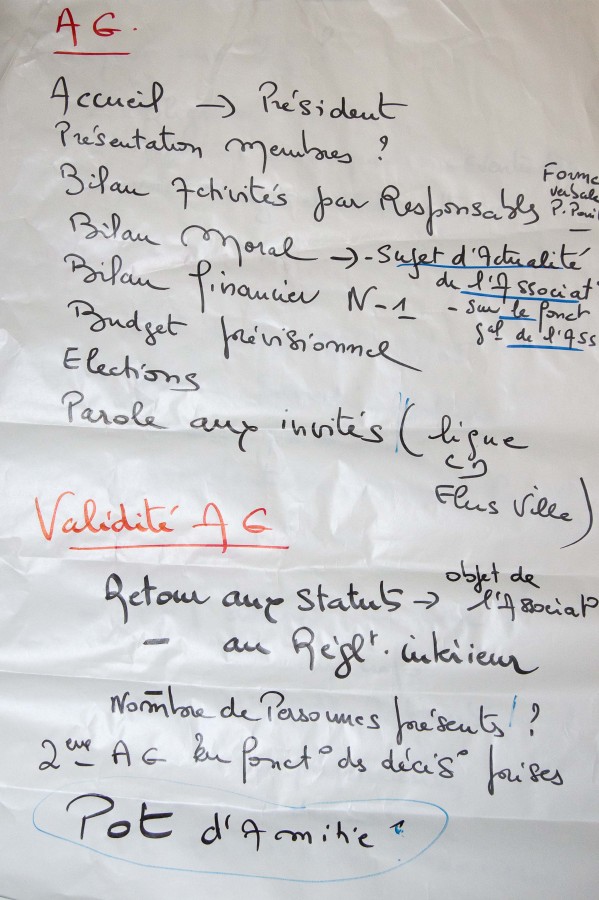 A G.
Accueil → Président
Présentation membres ?
Bilan Activités par Responsables
Forme
verbale
P. Poi
Bilan Moral → - Sujet d'Actualité
de l'Associat°
Bilan financier N-1 - Sur le fonct
gal de l'Ass
Budget prévisionnel
Elections
Parole aux invités ( ligue
CD
Elus Ville )
Validité A G
Retour aux Statuts → objet de
l'Associat°
- au Règlt. intérieur
Nombre de Personnes présents ?
2ème AG en fonct° des décis° prises
Pot d'Amitié